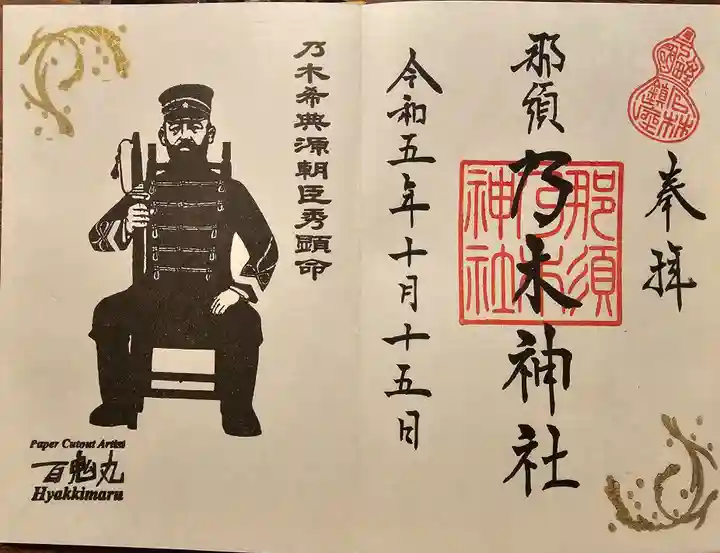 奉拝
那須乃木神社
那須乃木神社
令和五年十月十五日
乃木希典源朝臣秀顕命
Paper Cutout Artist
百鬼丸
Hyakkimaru